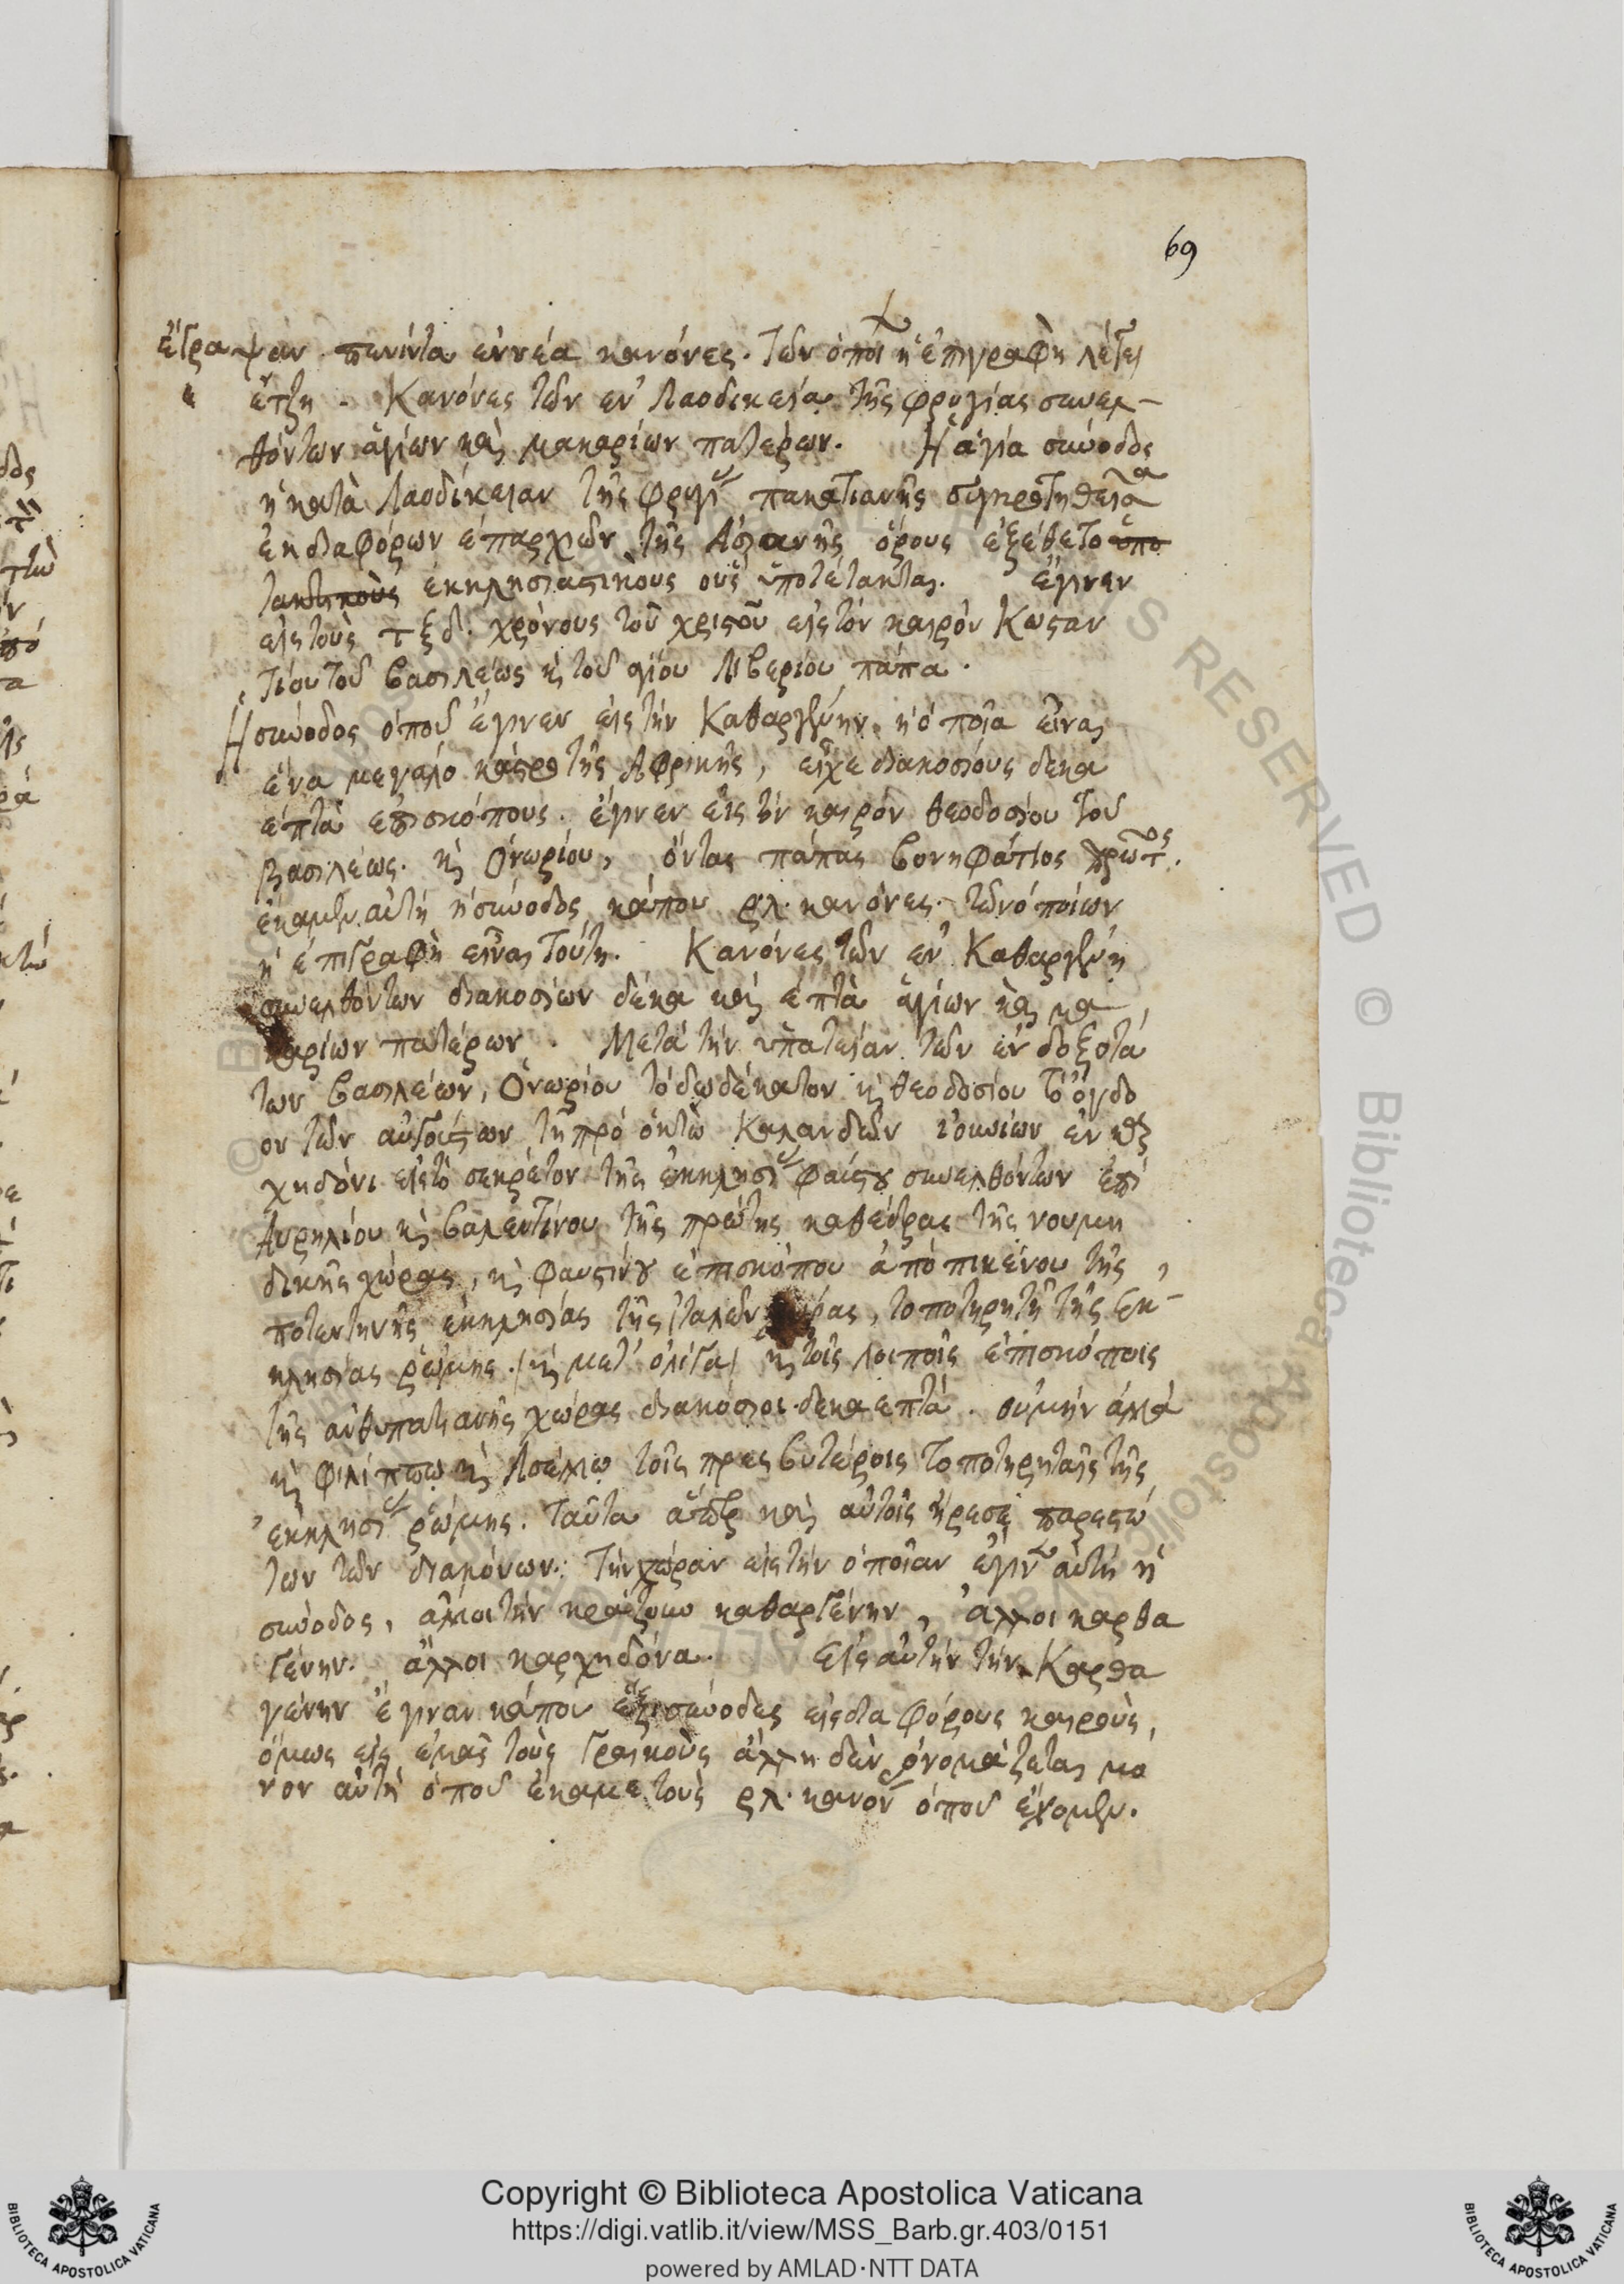 69
ἔγραψαν πενίντα εννέα κανόνες. τῶν ὁποί ἡ ἐπιγραφὴ λέγει
ἔτζη. Κανόνες τῶν εν Λαοδικεία της φρυγίας συνελ-
θόντων ἁγίων καὶ μακαρίων πατέρων. Η ἁγία σύνοδος
ἡ κατὰ Λαοδίκειαν τῆς φρυγί πακατιανῆς συγκροτηθεῖσα
ἐκ διαφόρων ἐπαρχιῶν τῆς Ασιανῆς ὅρους εξέθετο ὑπο
τακτικοὺς ἐκκλησιαστικους ους ὑποτέτακται. ἔγινεν
εἰς τοὺς τξδ. χρόνους τοῦ χριστοῦ εἰς τὸν καιρὸν Κωσταν
τίου τοῦ βασιλέως κ τοῦ αγίου Λιβερίου πάπα.
Η σύνοδος ὁποῦ ἔγινεν εἰς τὴν Καθαργένην, ἡ ὁποῖα εἶναι
ἕνα μεγαλο κάστρο τῆς Αφρικῆς, εἶχε διακοσίους δεκα
επτὰ επισκόπους. ἔγινεν εἰς τὸν καιρὸν θεοδοσίου τοῦ
βασιλέως κ Ονωρίου, ὄντας πάπας βονηφάτιος πρῶτος.
ἐκαμεν αὐτὴ ἡ σύνοδος κάπου ρλ. κανόνες τῶν ὁποίων
ἡ ἐπιγραφὴ εἶναι τούτη. Κανόνες τῶν εν Καθαργένη
συνελθόντων διακοσίων δέκα καὶ ἑπτὰ ἁγίων καὶ μα
καρίων πατέρων. Μετὰ τὴν ὑπατείαν τῶν ἐνδοξοτά
των βασιλέων, Ονωρίου τὸ δωδέκατον κ θεοδοσίου τὸ ὄγδο
ον τῶν αὐγούστων τῇ πρὸ ὀκτὼ Καλανδῶν ἰουνίων ἐν καρ
χηδόνι εἰς τὸ σεκρέτον τῆς ἐκκλησί φαύστου συνελθόντων ἐπὶ
Αυρηλίου κ βαλεντίνου τῆς πρώτης καθέδρας τῆς νουμη
δικῆς χώρας, κ φαυστίνου ἐπισκόπου ἀπὸ πικένου τῆς
ποτεντηνῆς ἐκκλησίας τῆς ἰταλῶν χώρας, τοποτηρητῆ τῆς Εκ-
κλησίας ρώμης. (κ μετ' ὀλίγα) κ τοῖς λοιποῖς ἐπισκόποις
τῆς ανθυπατιανῆς χώρας διακόσιοι δεκαεπτά. οὐ μὴν ἀλλὰ
κ φιλίππω κ Ασέλλω τοῖς πρεσβυτέροις τοποτηρηταῖς τῆς
ἐκκλησί ρώμης. ταῦτα ἅπερ καὶ αὐτοῖς ἤρεσε παρεστώ
των τῶν διακόνων. Τὴν χώραν εἰς τὴν ὁποῖαν ἔγιν αὐτὴ ἡ
σύνοδος, ἄλλοι τὴν κράζουν καθαργένην, ἄλλοι καρθα
γένην. ἄλλοι καρχηδόνα. Εἰς αὐτὴν τὴν Καρθα
γένην ἔγιναν κάπου ἕξι σύνοδες εἰς διαφόρους καιροὺς,
ὅμως εἰς ἐμᾶς τοὺς Γραικοὺς ἄλλη δὲν ὀνομάζεται μό
νον αὐτὴ ὁποῦ ἔκαμε τοὺς ρλ. κανόν ὁποῦ ἔχομεν.
Copyright © Biblioteca Apostolica Vaticana
https://digi.vatlib.it/view/MSS_Barb.gr.403/0151
powered by AMLAD·NTT DATA